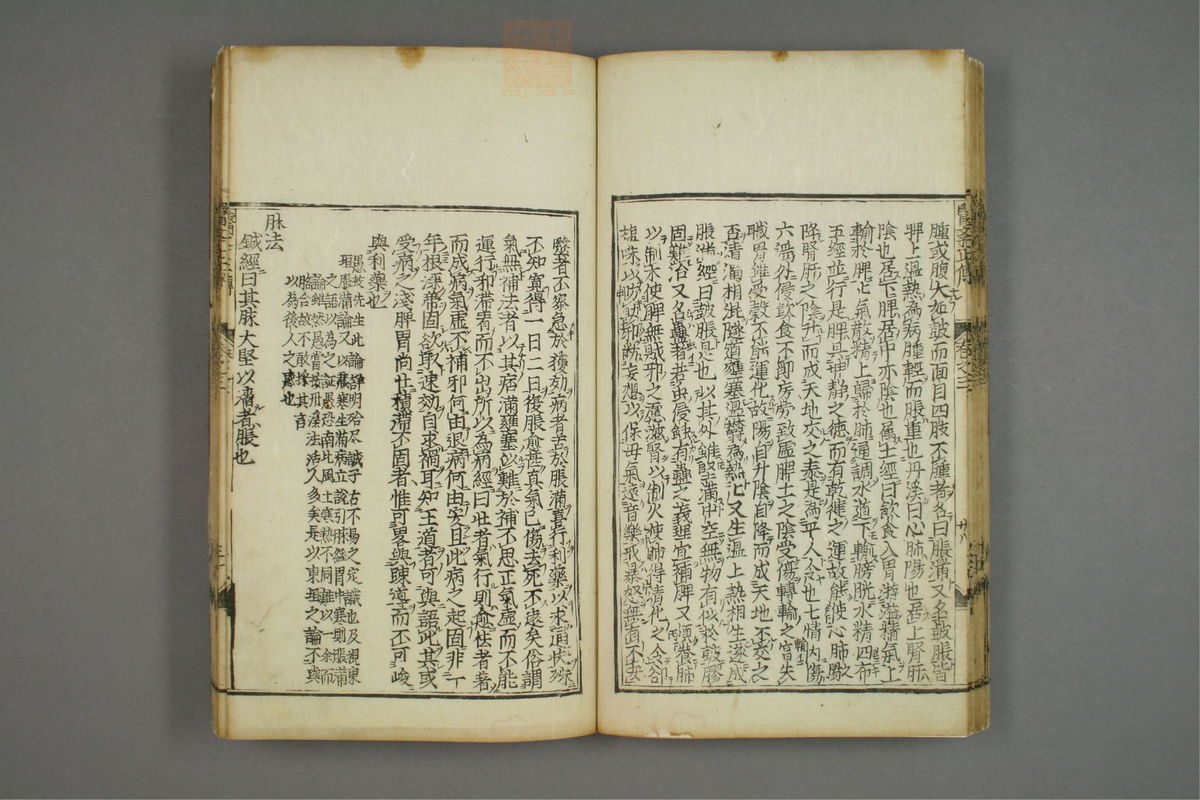 腫或腹大如鼓而面目四肢不腫者名曰脹滿又名鼓脹皆
脾土濕熱為病腫輕而脹重也丹溪曰心肺陽也居上腎肝
陰也居下脾居中亦陰也屬土經曰飲食入胃游溢精氣上
輸於脾脾氣散精上歸於肺通調水道下輸膀胱水精四布
五經並行是脾具坤静之德而有乾健之運故能使心肺之陽
降腎肝之陰升而成天地交之泰是為平人今也七情内傷
六淫外侵飲食不節房勞致虛脾土之陰受傷轉輸之官失
職胃雖受穀不能運化故陽自升陰自降而成天地不交之
否清濁相混隧道壅塞濕鬱為熱熱又生濕濕熱相生遂成
脹滿經曰鼓脹是也以其外雖堅滿中空無物有似於鼓膠
固難治又名曰蠱者若虫侵蝕有蠱之義理宜補脾又須養肺
以制木使脾無賊邪之慮滋腎以制火使肺得清化之令却
鹽味以防助邪斷妄想以保母氣遠音樂戒暴怒無有不安
醫者不察急於獲効病者苦於脹滿喜行利藥以求通快殊
不知寛得一日二日復脹愈甚真氣已傷去死不遠矣俗謂
氣無補法者以其痞滿壅塞以難於補不思正氣虛而不能
運行和滯着而不出所以為病經曰壯者氣行則愈怯者着
而成病氣虛不補邪何由退病何由安且此病之起固非一
年根深蒂固欲取速効自求禍耳知王道者可與語此其或
受病之淺脾胃尚壯積滯不固者惟可畧與疎導而不可峻
與利藥也
愚按先生此論詳明殆尽誠千古不易之定議也及視東
垣脹滿論又以藏寒生滿病立説引脉經胃中寒則脹滿
之語以為之証愚恐南北風土寒熱不同難以一余而
論雖然愚嘗按丹溪法活人多矣是以東垣之論不與
脗合故不敢採其言
以為後人之惑也
脉法
鍼經曰其脉大堅以濇者脹也